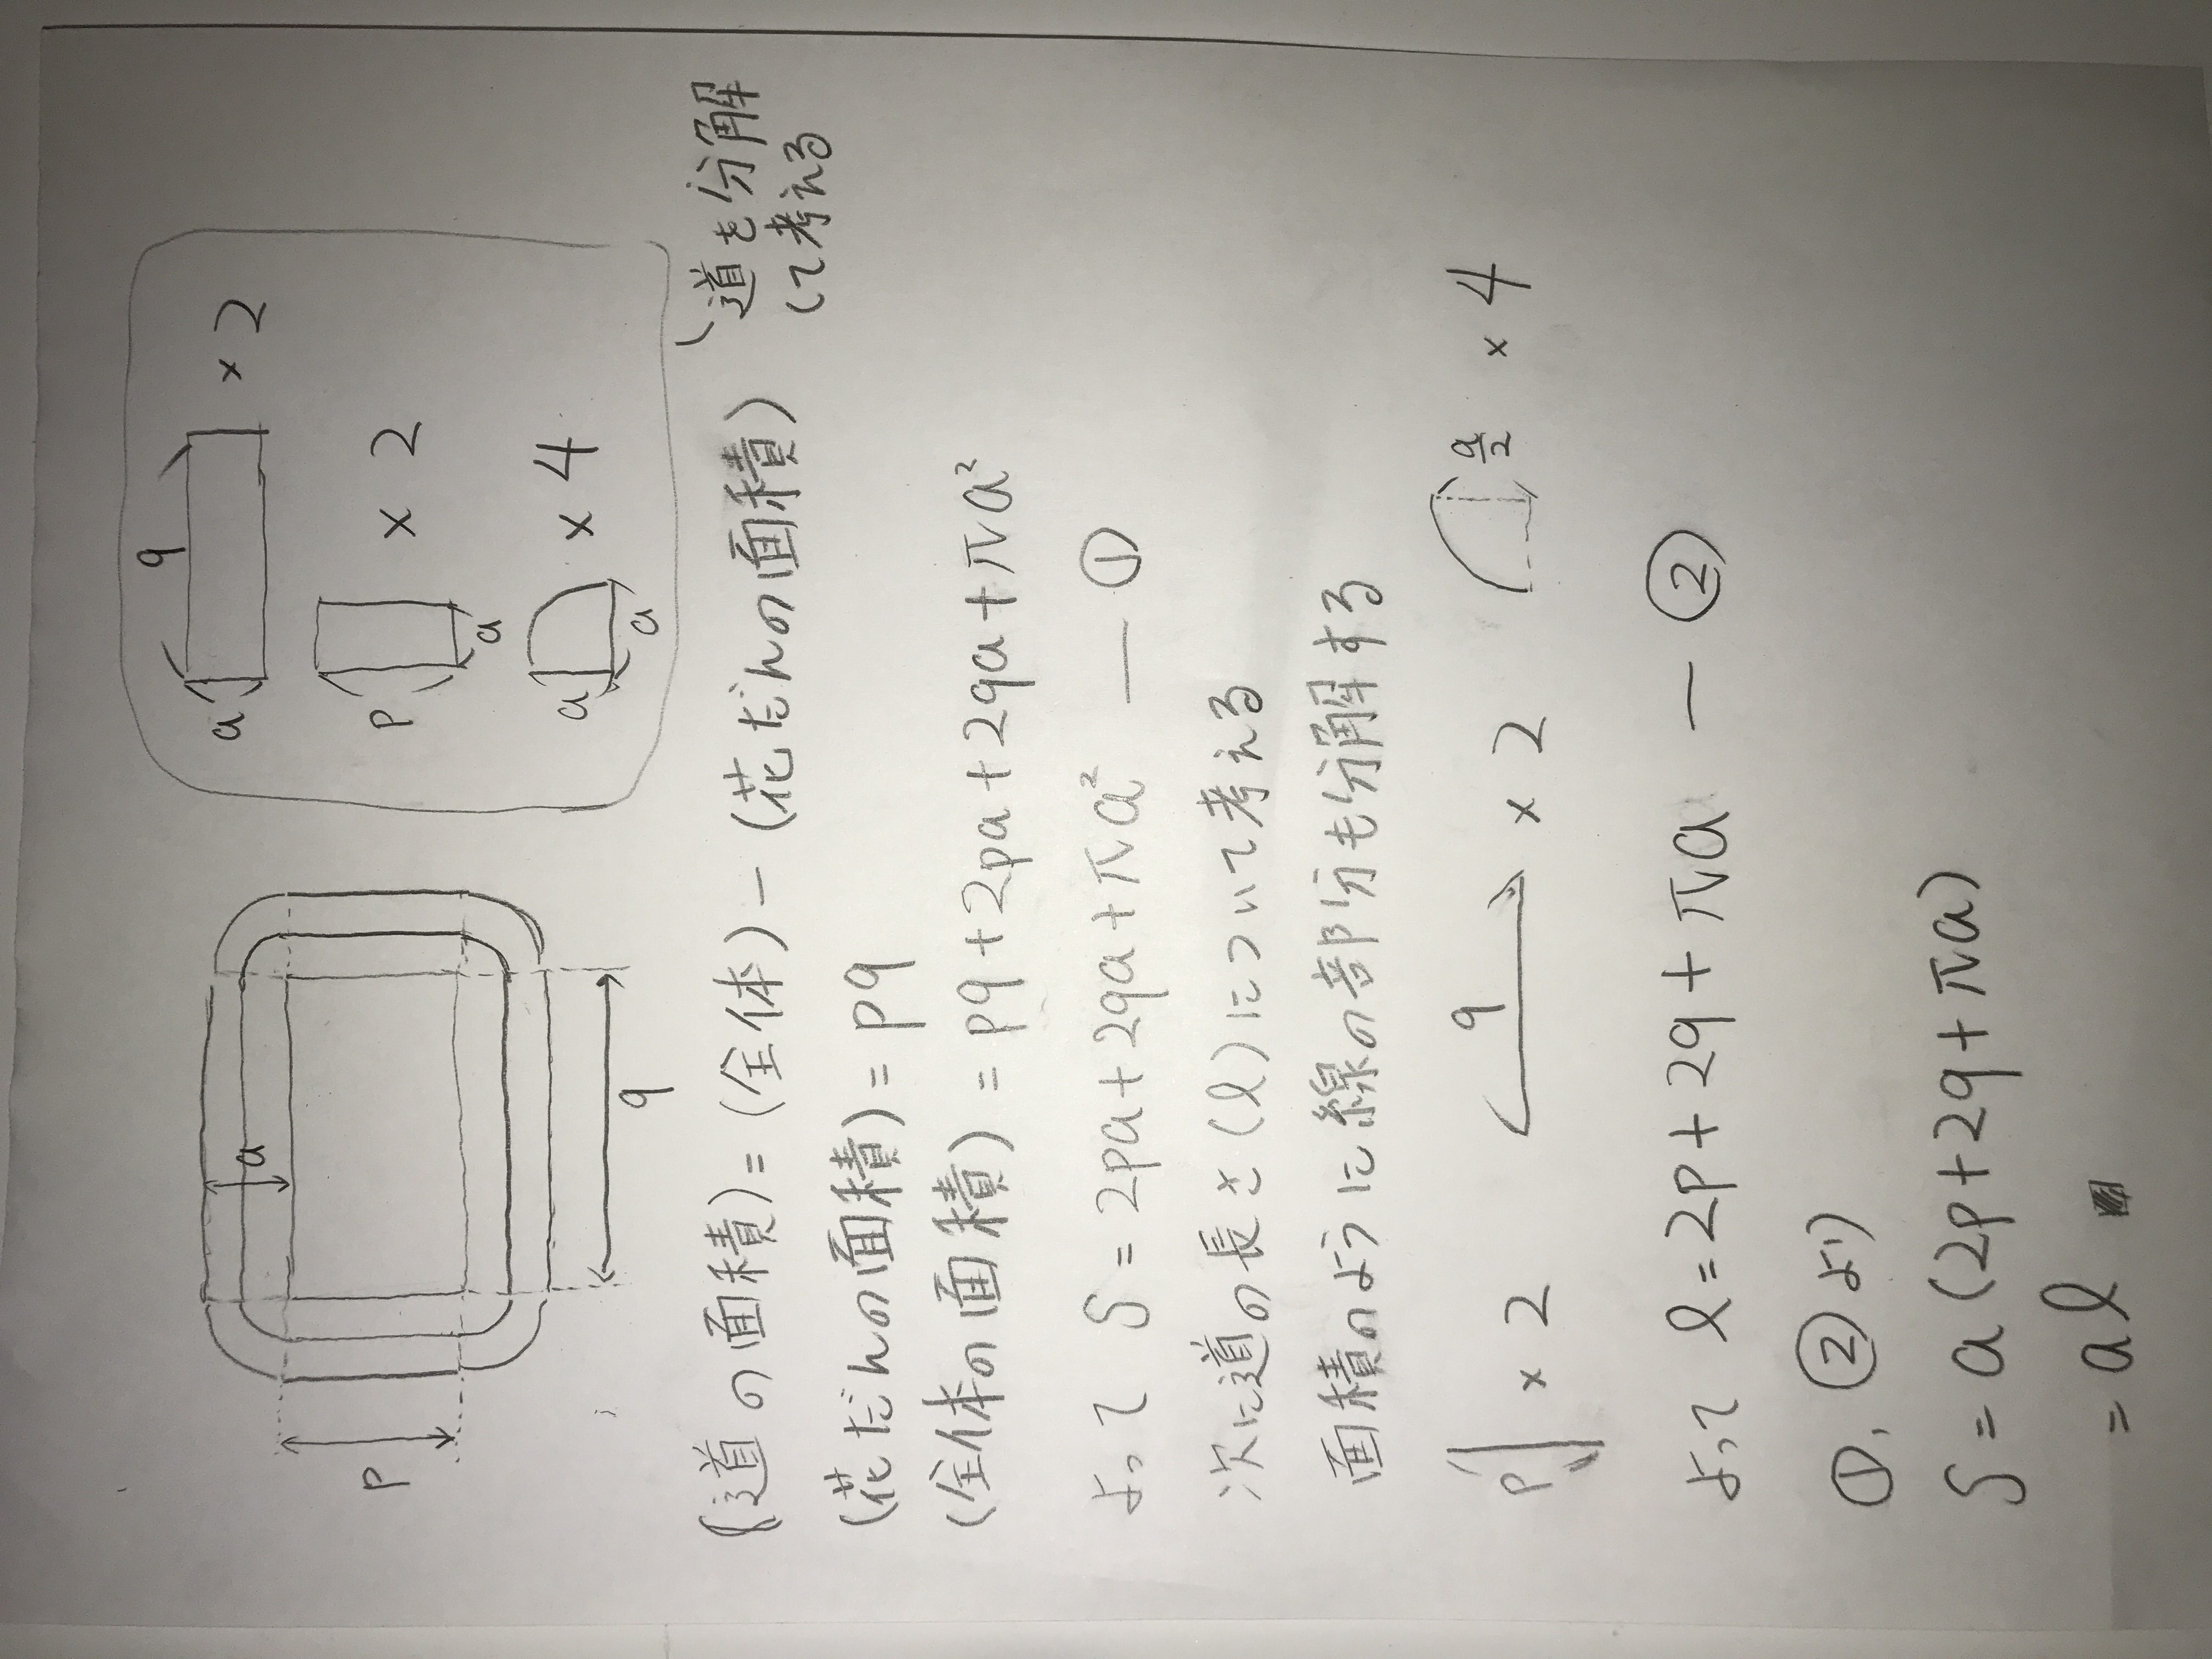 a
p
q
q
a
× 2
p
a
× 2
a
a
× 4
道を分解
して考える
(道の面積) = (全体) - (花だんの面積)
(花だんの面積) = pq
(全体の面積) = pq + 2pa + 2qa + πa²
よって S = 2pa + 2qa + πa² — ①
次に道の長さ(ℓ)について考える
面積のように線の部分も分解する
p × 2 q × 2 a/2 × 4
よって ℓ = 2p + 2q + πa — ②
①, ②より
S = a (2p + 2q + πa)
= aℓ